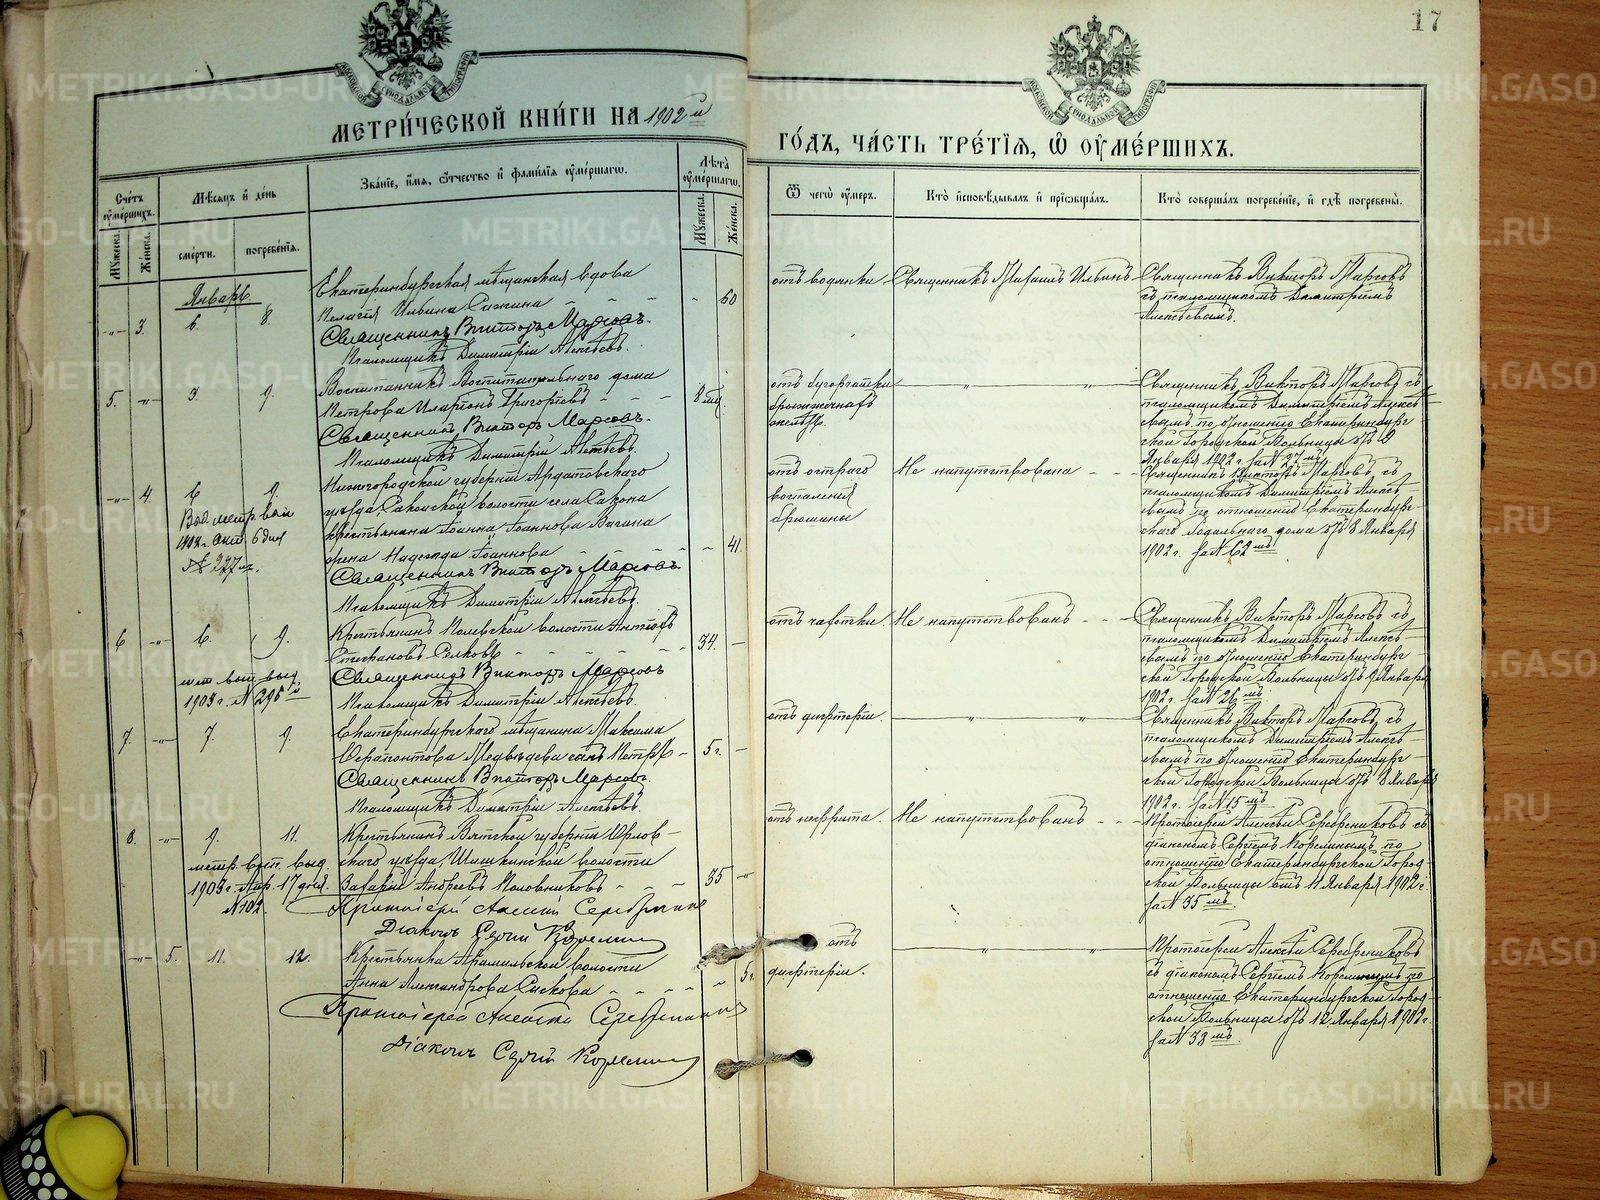 17
МОСКОВСКОЙ СѴНОДАЛЬНОЙ ТИПОГРАФІИ
МОСКОВСКОЙ СѴНОДАЛЬНОЙ ТИПОГРАФІИ
МЕТРИ́ЧЕСКОЙ КНИ́ГИ НА 1902 й
ГО́ДЪ, ЧА́СТЬ ТРЕ́ТІѦ, Ѡ ОУМЕ́РШИХЪ.
Счетъ оумершихъ.
Мужеска.
Женска.
Мѣсяцъ и день
смерти.
погребенія.
Званіе, имя, отчество и фамилія оумершагѡ.
Лѣта оумершагѡ.
Мужеска.
Женска.
Ѿ чегѡ оумеръ.
Кто исповѣдывалъ и пріобщалъ.
Кто совершалъ погребеніе, и гдѣ погребены.
Январь
-„- 3. 6. 8.
Екатеринбургская мѣщанская вдова
Пелагія Ильина - - - „ 60
Священникъ Викторъ Марсовъ.
Псаломщикъ Димитрій
отъ водянки
Священникъ Ильинъ
Священникъ Викторъ Марсовъ
съ псаломщикомъ Димитріемъ
5. -„- 3. 9.
Воспитанникъ Воспитательнаго дома
Петрова Иларіонъ Григорьевъ - - - 8 мѣ.
Священникъ Викторъ Марсовъ.
Псаломщикъ Димитрій
отъ бугорчатки
брыжжечныхъ
железъ.
„ „
Священникъ Викторъ Марсовъ съ
псаломщикомъ Димитріемъ
по отношенію Екатеринбург
ской Городской Больницы отъ 9
Января 1902 г. за № 27 мъ
-„- 4. 6 9.
Нижегородской губерніи Ардатовскаго
уѣзда, волости села
крестьянина Іоанна Іоаннова
жена Надежда Іоаннова - - „ 41.
Священникъ Викторъ Марсовъ.
Псаломщикъ Димитрій
1902 г. Окт. 6 дня
№ 227 м.
отъ остраго
воспаленія
брюшины
Не напутствована - -
Священникъ Викторъ Марсовъ съ
псаломщикомъ Димитріемъ
по отношенію Екатеринбург
скаго Родильнаго дома отъ 8 Января
1902 г. за № 62 мъ
6 -„- 6. 9.
Крестьянинъ Полевской волости
Стефановъ - - - 34. -
Священникъ Викторъ Марсовъ
Псаломщикъ Димитрій
отъ чахотки.
Не напутствованъ - -
Священникъ Викторъ Марсовъ съ
псаломщикомъ Димитріемъ
по отношенію Екатеринбург
ской Городской Больницы отъ 9 Января
1902 г. за № 26 мъ
7. -„- 7. 9.
Екатеринбургскаго мѣщанина Максима
Ферапонтова Медвѣдева сынъ Петръ - 5 г. -
Священникъ Викторъ Марсовъ
Псаломщикъ Димитрій
отъ дифтеріи.
„ „
Священникъ Викторъ Марсовъ съ
псаломщикомъ Димитріемъ
по отношенію Екатеринбург
ской Городской Больницы отъ 8 Января
1902 г. за № 15 мъ
8. -„- 9. 11.
Крестьянинъ Вятской губерніи Орлов-
скаго уѣзда, Шишкинской волости
Захарій Андреевъ Половниковъ - - - 35 -„
Протоіерей Алексій Серебренниковъ
Діаконъ Сергій Корелинъ
метр. вып. выд.
1903 г. Апр. 17 дня.
№ 102
отъ нефрита.
Не напутствованъ - - -
Протоіерей Алексѣй Серебренниковъ съ
діакономъ Сергіемъ Корелинымъ по
отношенію Екатеринбургской Город-
ской Больницы отъ 11 Января 1902 г.
за № 35 мъ
-„- 5. 11. 12.
Крестьянка Арамильской волости
Анна Александрова - - - „ 5 г.
Протоіерей Алексій Серебренниковъ
Діаконъ Сергій Корелинъ
отъ
дифтеріи.
„ „
Протоіерей Алексѣй Серебренниковъ
съ діакономъ Сергіемъ Корелинымъ по
отношенію Екатеринбургской Город-
ской Больницы отъ 12 Января 1902 г.
за № 38 мъ
METRIKI.GASO-URAL.RU